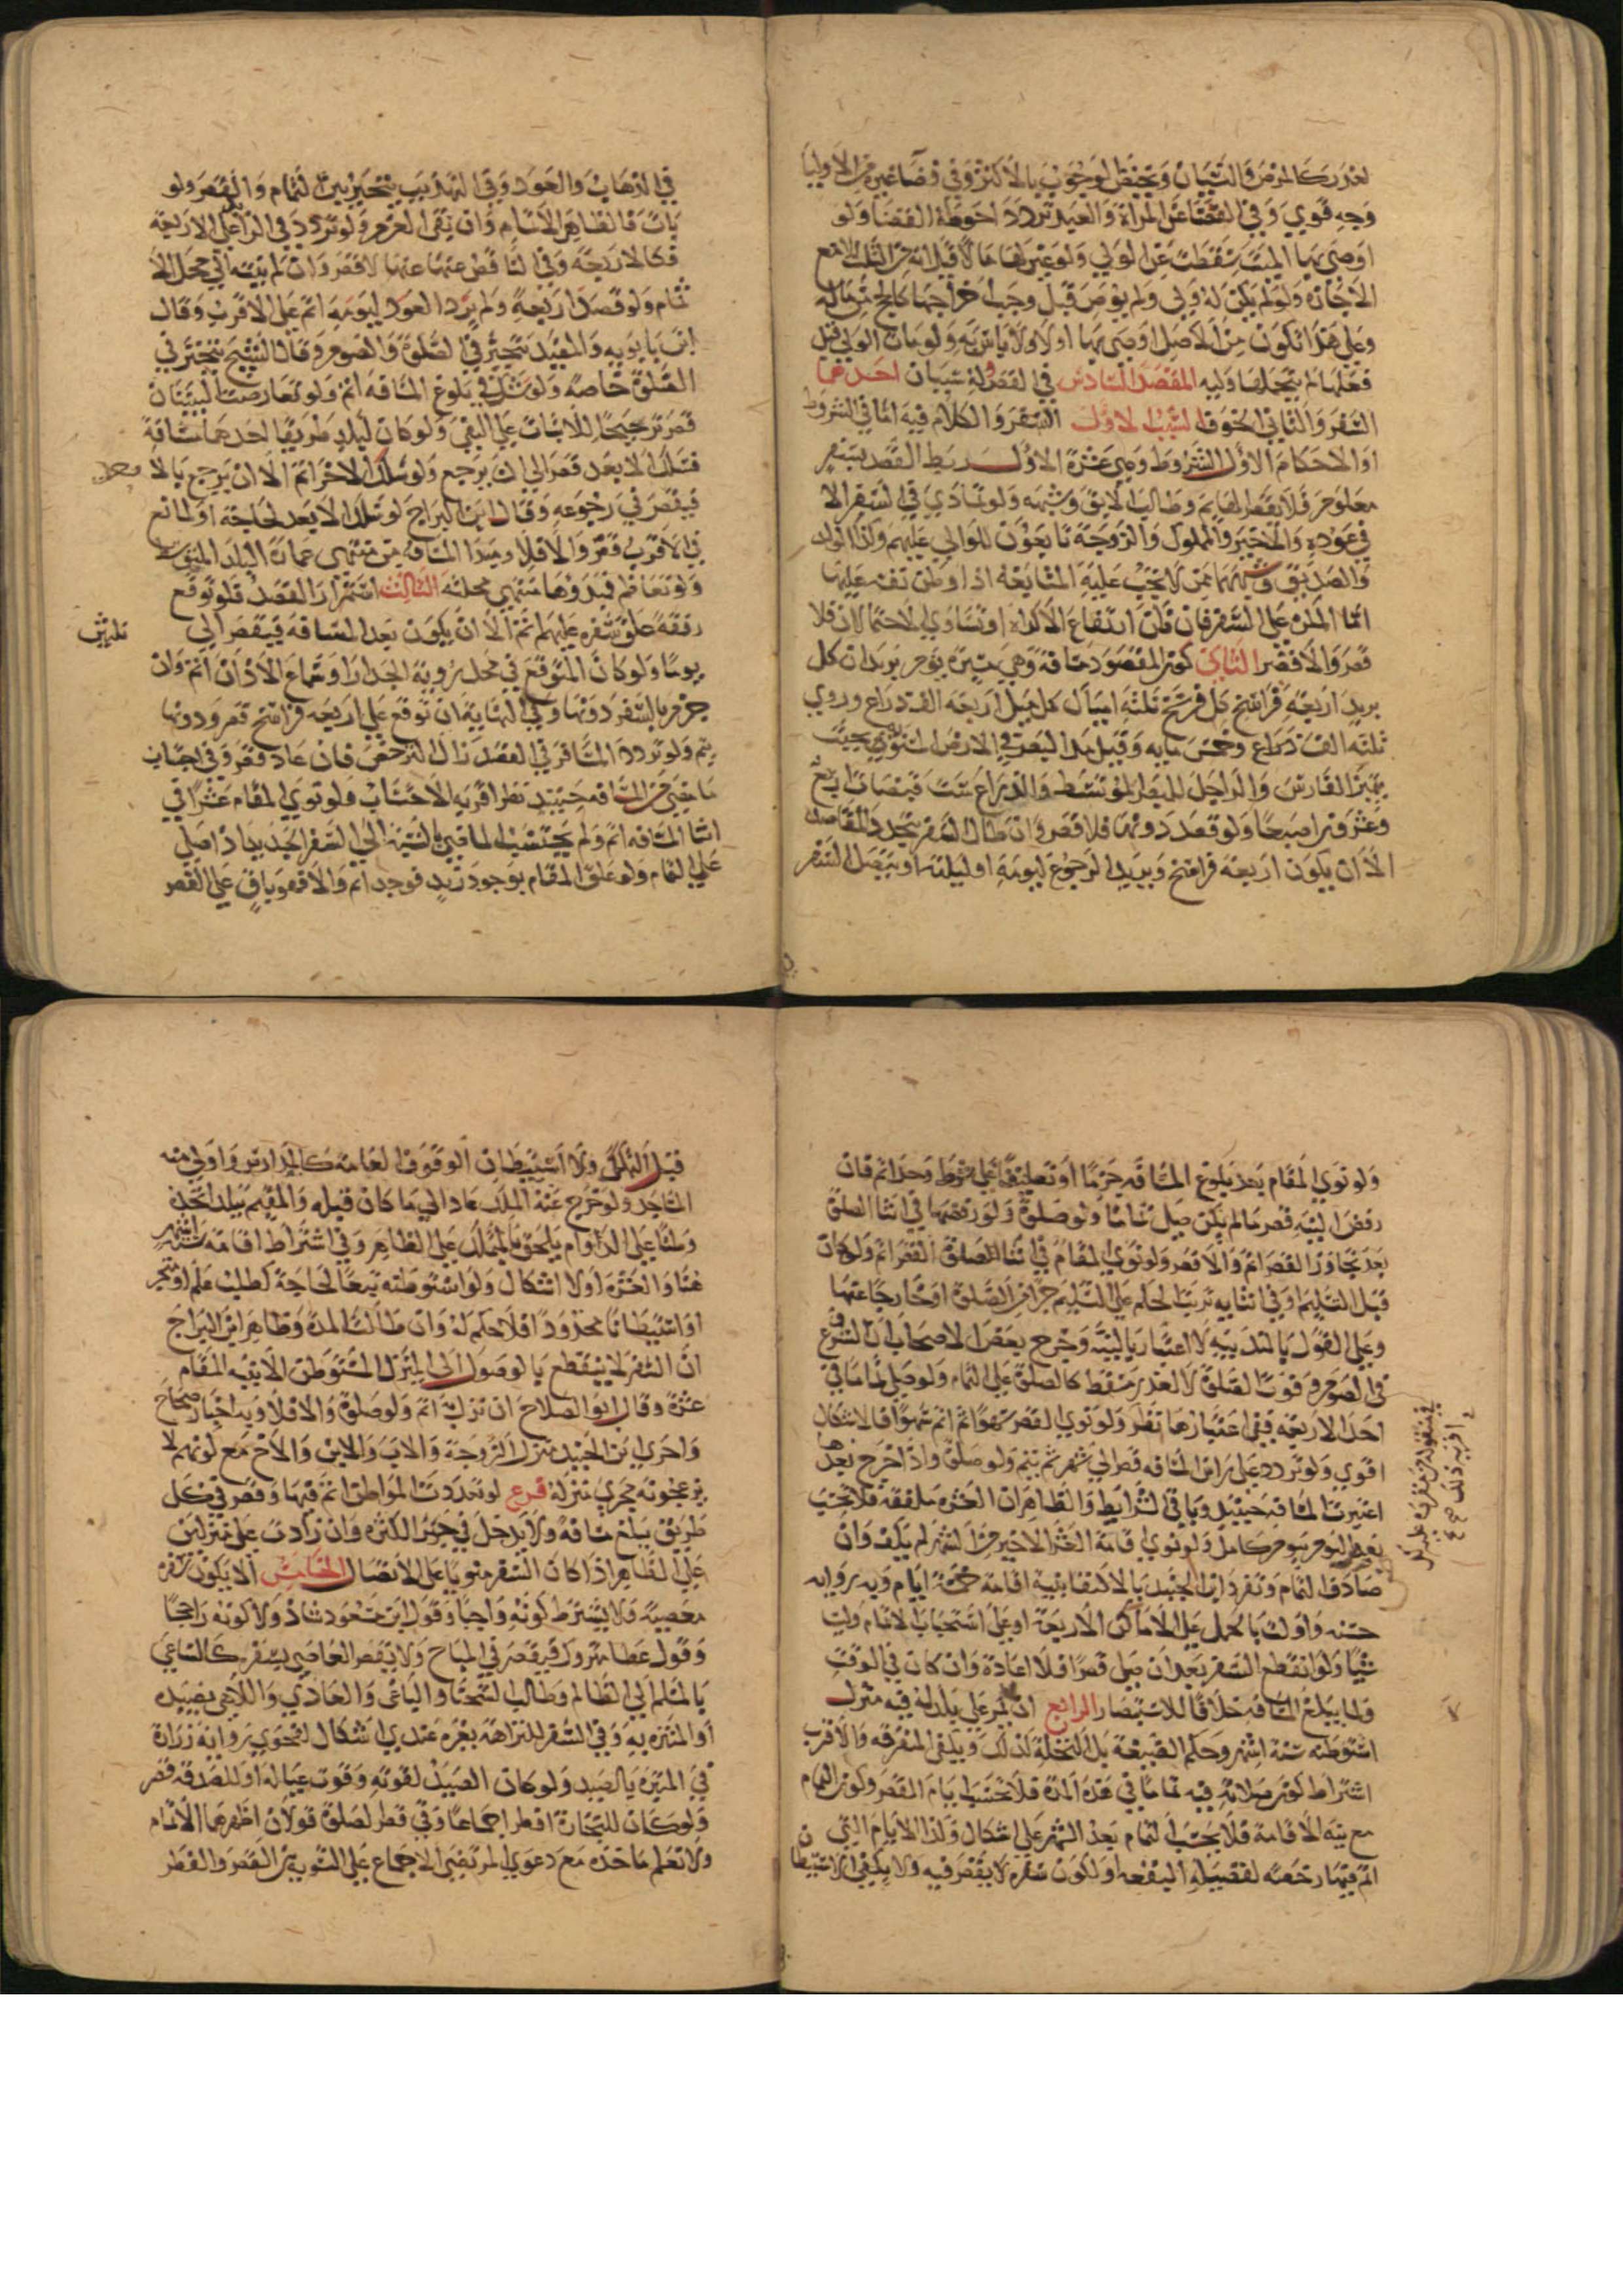 لعذر كالمرض والنسيان ويختص الوجوب بالاكثر وفي قضا غير الاوليا
وجه قوي وفي القضا عن المراة والعبد تردد احوطه القضا ولو
اوصى بها الميت سقطت عن الولي ولو عين لها مالا قيل انه من الثلث الا مع
الاجازة ولو لم يكن له ولي ولم يوص قيل وجب اخراجها كالحج من ماله
وعلى هذا تكون من الاصل اوصى بها اولا ولا باس به ولو مات الولي قبل
فعلها لم يتحملها وليه المقصد السادس في القصر وله سببان احدهما
السفر والثاني الخوف السبب الاول السفر والكلام فيه اما في الشروط
او الاحكام الاول الشروط وهي عشرة الاول ربط القصد بسفر
معلوم فلا يقصر الهايم وطالب الابق وشبهه ولو تمادى في السفر الا
في عوده والاجير والمملوك والزوجة تابعون للوالي عليهم وكذا الولد
والصديق وشبههما ممن لا يجب عليه المتابعة اذا وطن نفسه عليها
اما المكره على السفر فان ظن ارتفاع الاكراه او تساوي الاحتمالان فلا
قصر والا قصر الثاني كون المقصود مسافة وهي مسيرة يوم بريدان كل
بريد اربعة فراسخ كل فرسخ ثلثة اميال كل ميل اربعة الف ذراع وروي
ثلثة الف ذراع وخمس مايه وقيل مد البصر في الارض المستوي بحيث
يميز الفارس والراجل للمبصر المتوسط والذراع ست قبضات اربع
وعشرون اصبعا ولو قصد دونها فلا قصر وان طال السفر بتجدد المقاصد
الا ان يكون اربعة فراسخ ويريد الرجوع ليومه او ليلته او يتصل السفر
في الذهاب والعود وفي التهذيب يتخير بين التمام والقصر ولو
بات فالظاهر الاتمام وان بقى العزم ولو تردد في الزايد على الاربعة
فكالاربعة وفي الناقص عنها لا قصر وان لم ينته الى محل الا
تمام ولو قصد اربعة ولم يرد العود ليومه اتم على الاقرب وقال
ابن بابويه والمفيد يتخير في الصلوة والصوم وقال الشيخ يتخير في
الصلوة خاصة ولو شك في بلوغ المسافة اتم ولو تعارضت البينتان
قصر ترجيحا للاثبات على النفي ولو كان لبلد طريقا احدهما مسافة
فسلك الابعد قصر الى ان يرجع ولو سلك الاخر اتم الا ان يرجع بالا
فيقصر في رجوعه وقال ابن البراج لو سلك الابعد لحاجة او لمانع
في الاقرب قصر والا فلا ومبدا المسافة من منتهى عمارة البلد المتوسط
ولو تعاظم فمبدؤها منتهى محلته الثالث استمرار القصد فلو توقع
رفقة علق سفره عليهم اتم الا ان يكون بعد المسافة فيقصر الى ثلثين
يوما ولو كان التوقع في محل رؤية الجدار او سماع الاذان اتم وان
جزم بالسفر دونها وفي النهاية ان توقع على اربعة فراسخ قصر ودونها
يتم ولو تردد المسافر في القصد زال الترخص فان عاد قصر وفي احتساب
ما مضى من المسافة حينئذ نظر اقربه الاحتساب ولو نوى المقام عشرا في
اثنا المسافة اتم ولم يحتسب الماضي بالنسبة الى السفر الجديد اذا صلى
على التمام ولو علق المقام بوجود زيد فوجد اتم والا فهو باق على القصر
ولو نوى المقام بعد بلوغ المسافة جزما او تعليقا على شرط وجد اتم فان
رفض النيه قصر ما لم يكن صلى تماما ولو صلوة ولو رفضها في اثنا الصلوة
بعد تجاوز القصر اتم والا قصر ولو نوى المقام في اثنا الصلوة القصر اتم ولو كان
قبل التسليم او في اثنايه ترتب الحكم على التسليم جزا من الصلوة او خارجا عنها
وعلى القول بالندبيه لا اعتبار بالنيه وخرج بعض الاصحاب ان الشرع
في الصوم وفوت الصلوة لا لعذر مسقط كالصلوة على التمام ولو صلى تماما في
احد الاربعة ففي اعتبارها نظر ولو نوى القصر سهوا ثم اتم سهوا فالاشكال
اقوى ولو تردد على راس المسافة قصر الى شهر ثم يتم ولو صلوة واذا خرج بعدها
اعتبرت المسافة حينئذ وباقي الشرايط والظاهر ان العشرة ملفقة فلا يجب
بعض اليوم بيوم كامل ولو نوى اقامة العشر الاخير من الشهر لم يكف وان
صادف التمام وتفرد ابن الجنيد بالاكتفا بنية اقامة خمسة ايام وبه رواية
حسنه واولت بالحمل على الاماكن الاربعة او على استحباب الاتمام وليت
شيئا ولو انقطع السفر بعد ان صلى قصرا فلا اعادة وان كان في الوقت
ولما يبلغ المسافة خلافا للاستبصار الرابع ان لا يمر على بلد له فيه منزل
استوطنه ستة اشهر وحكم الضيعة بل النخلة كذلك ويكفي المتفرقة والاقرب
اشتراط كون صلاته فيه تماما في هذه المدة فلا تحتسب ايام القصر وكون التمام
مع نية الاقامة فلا يحتسب التمام بعد الشهر على اشكال وكذا الايام التي
اتم فيها رخصة لفضيلة البقعة او لكون سفره لا يقصر فيه ولا يكفي الاستيطان
في
اقربه ذلك صح
قبل التملك ولا استيطان الوقوف العامة كالمدارس واولى منه
المساجد ولو خرج عنه الملك عاد الى ما كان قبله والمقيم ببلد اتخذه
وطنا على الدوام يلحق بالملك على الظاهر وفي اشتراط اقامة ستة اشهر
هنا والعشرة اولا اشكال ولو استوطنه تبعا لحاجة كطلب علم او متجر
او استيطانا محدودا فلا حكم له وان طالت المدة وظاهر ابن البراج
ان السفر لا ينقطع بالوصول الى المنزل المستوطن الا بنية المقام
عشرة وقال ابو الصلاح ان نزل به اتم ولو صلوة والا فلا وبه اخبار صحاح
واجرى ابن الجنيد منزل الزوجة والاب والابن والاخ مع كونهم لا
يزعجونه مجرى منزله فرع لو تعددت المواطن اتم فيها وقصر في كل
طريق يبلغ مسافة ولا يدخل في حيز الكثرة وان زادت على منزلين
على الظاهر اذا كان السفر منويا على الاتصال الخامس ان لا يكون سفره
معصية فلا يشترط كونه واجبا وقول ابن مسعود شاذ ولا كونه راجحا
وقول عطا متروك فيقصر في المباح ولا يقصر العاصي بسفره كالساعي
بالمسلم الى الظالم وطالب الشحنا والباغي والعادي واللاهي بصيده
او المتنزه به وفي السفر للنزاهة بغيره عندي اشكال لفحوى رواية زرارة
في المتنزه بالصيد ولو كان الصيد لقوته وقوت عياله او للصدقة قصر
ولو كان للتجارة افطر اجماعا وفي قصر الصلوة قولان اظهرهما الاتمام
ولا نعلم ماخذه مع دعوى المرتضى الاجماع على التسوية بين القصر والفطر